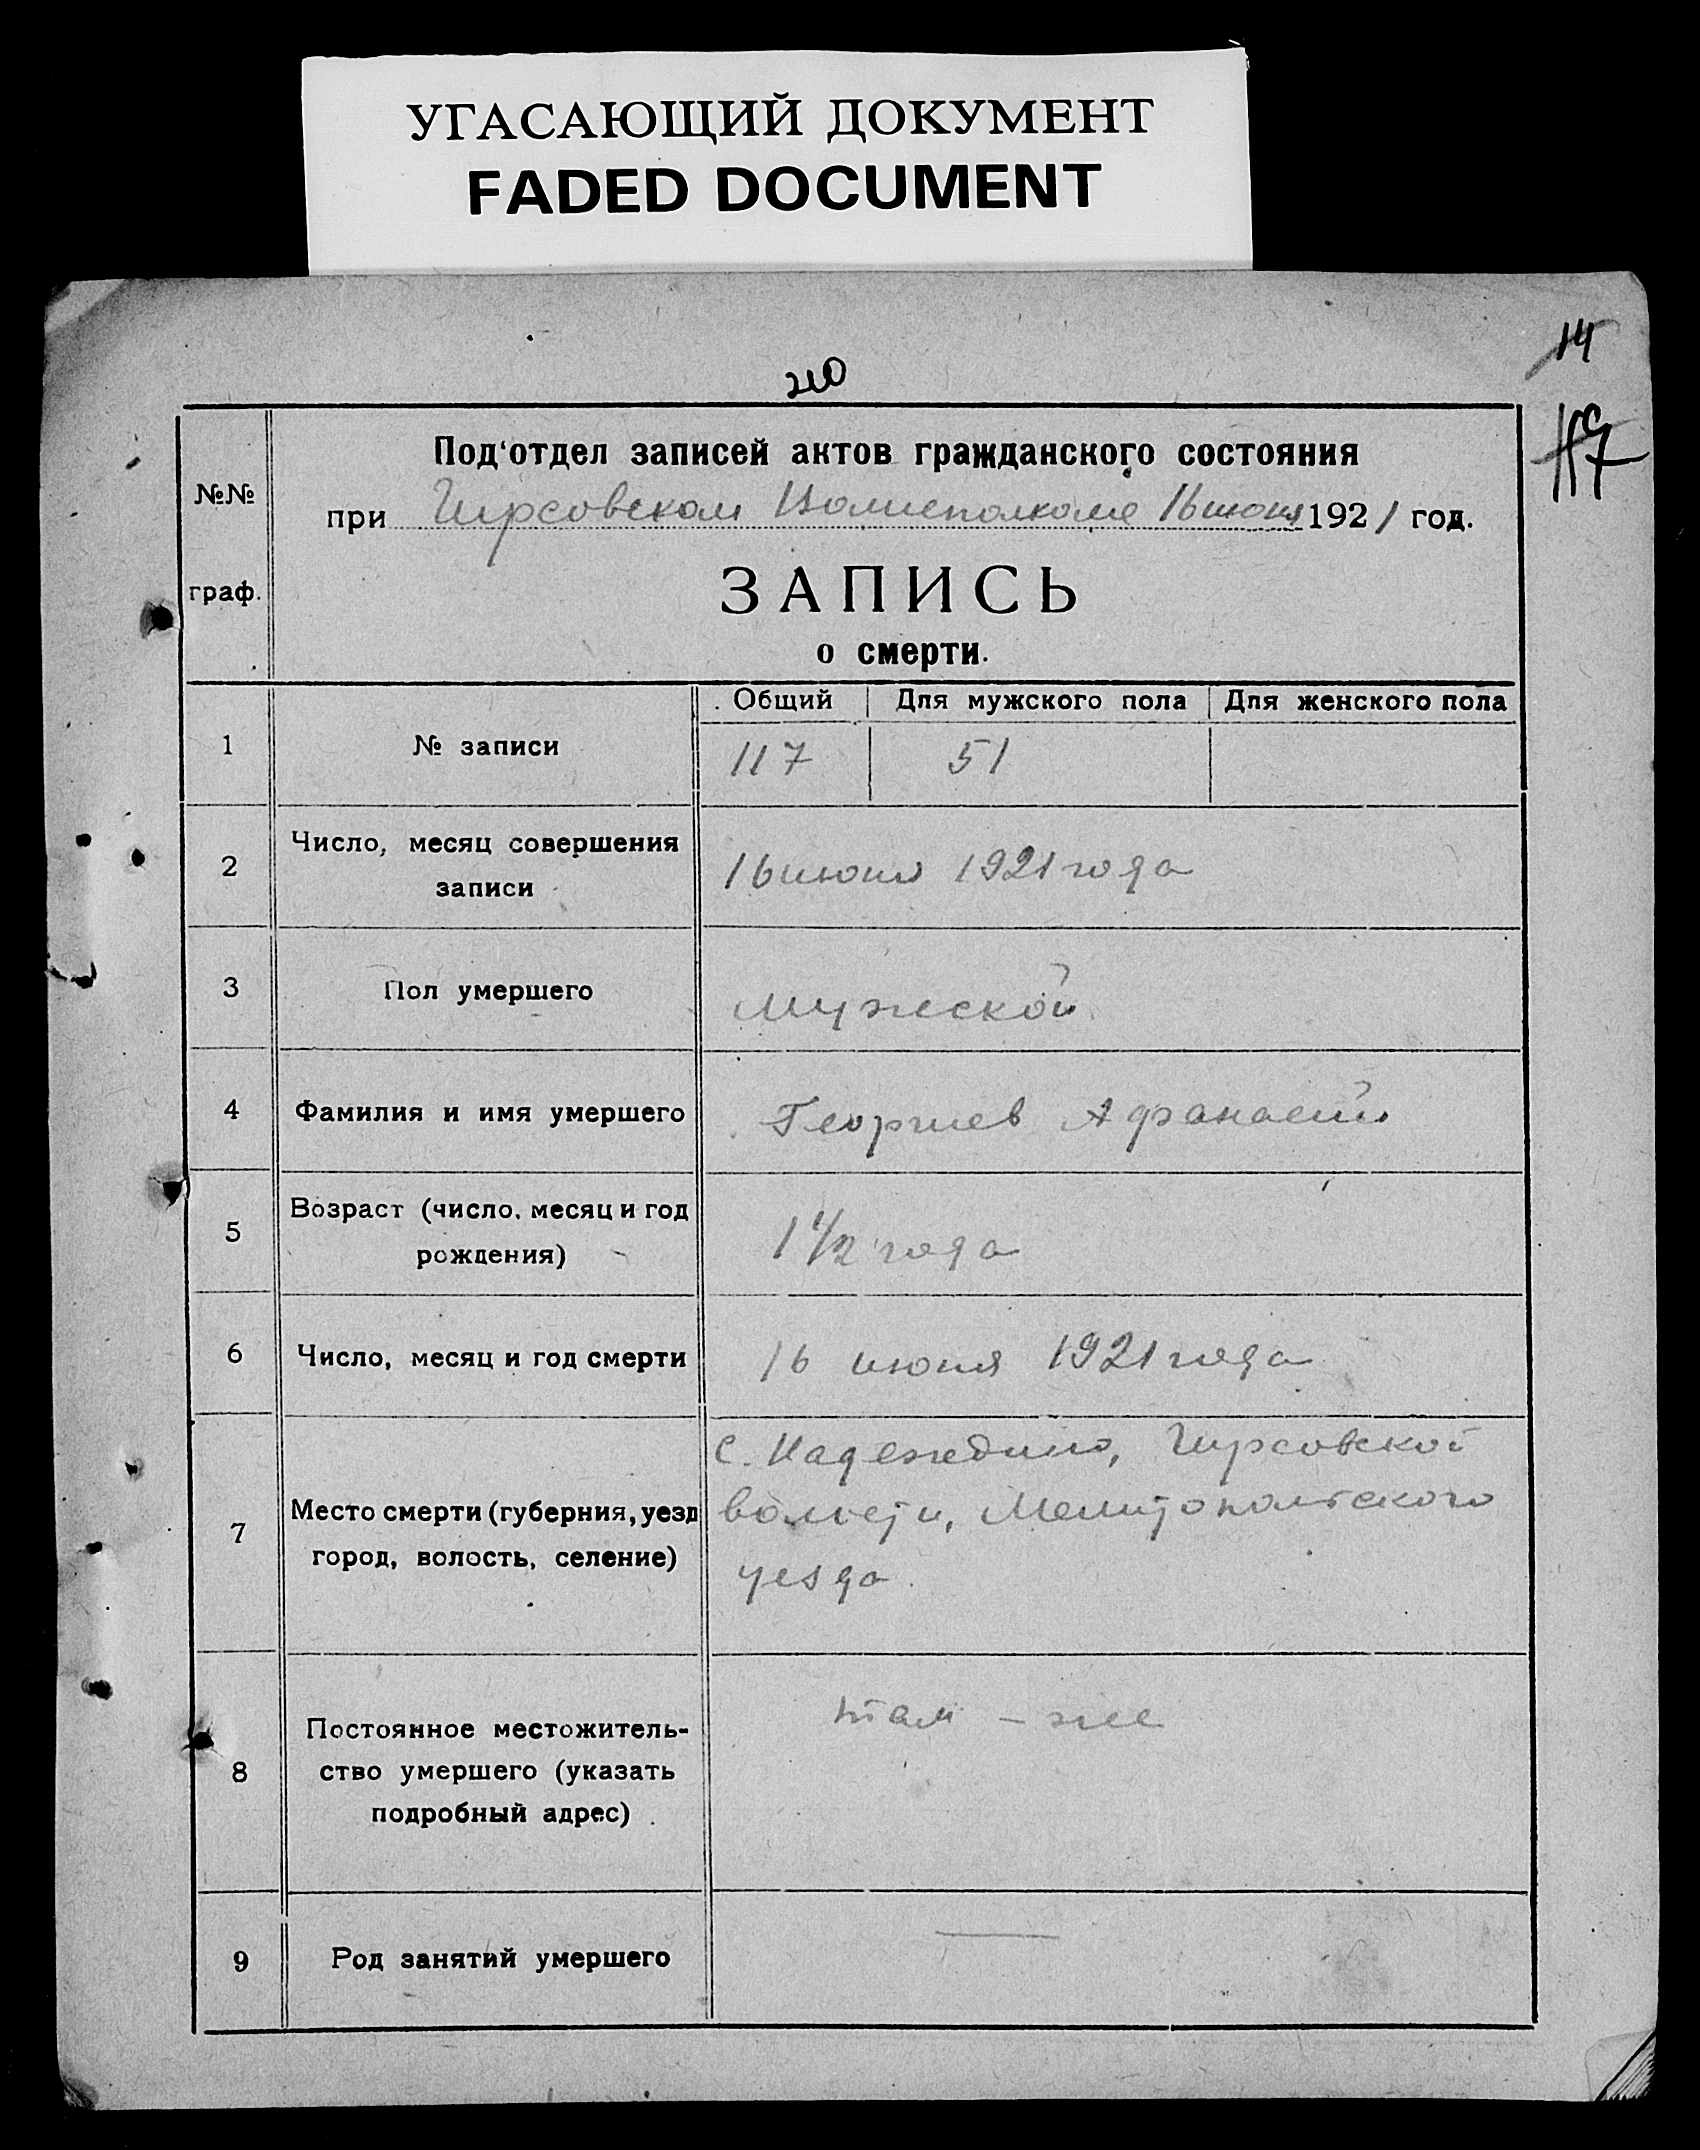 УГАСАЮЩИЙ ДОКУМЕНТ
FADED DOCUMENT
14
210
Под'отдел записей актов гражданского состояния
№№
при Гирсовском Волисполкоме 16 июня 1921 год.
ЗАПИСЬ
граф.
о смерти.
Общий Для мужского пола Для женского пола
1 № записи 117 51
2 Число, месяц совершения записи 16 июня 1921 года
3 Пол умершего мужеской
4 Фамилия и имя умершего Георгиев Афанасий
5 Возраст (число, месяц и год рождения) 1 1/2 года
6 Число, месяц и год смерти 16 июня 1921 года
7 Место смерти (губерния, уезд город, волость, селение) с. Надеждино, Гирсовской
волости, Мелитопольского
уезда.
8 Постоянное местожитель-
ство умершего (указать
подробный адрес)
там - же
9 Род занятий умершего —